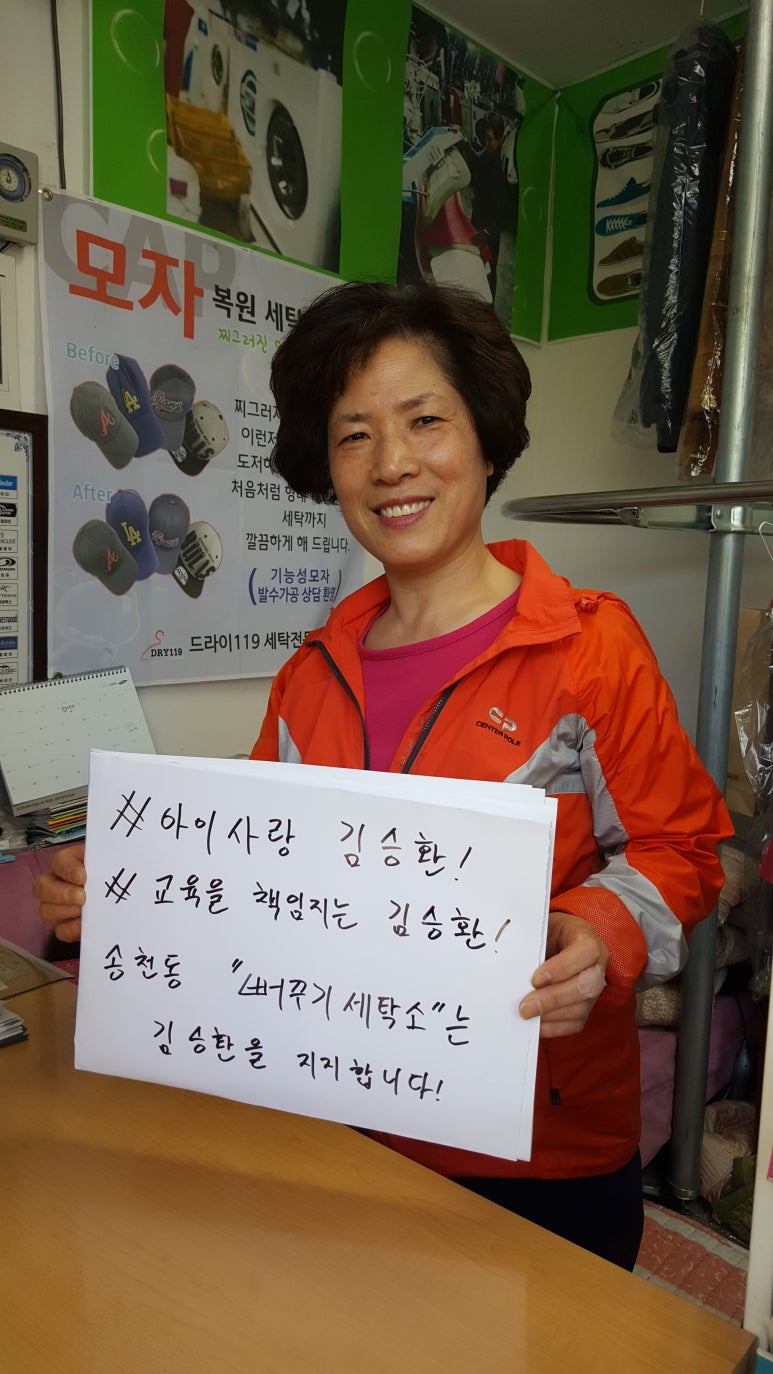 CAP
모자 복원 세탁
찌그러진
Before
After
처음처럼
세탁까지
깔끔하게 해 드립니다.
기능성모자
발수가공 상담 환영
DRY119 드라이119 세탁전문
CENTER POLE
# 아이사랑 김승환!
# 교육을 책임지는 김승환!
송천동 "뻐꾸기 세탁소"는
김승환을 지지합니다!